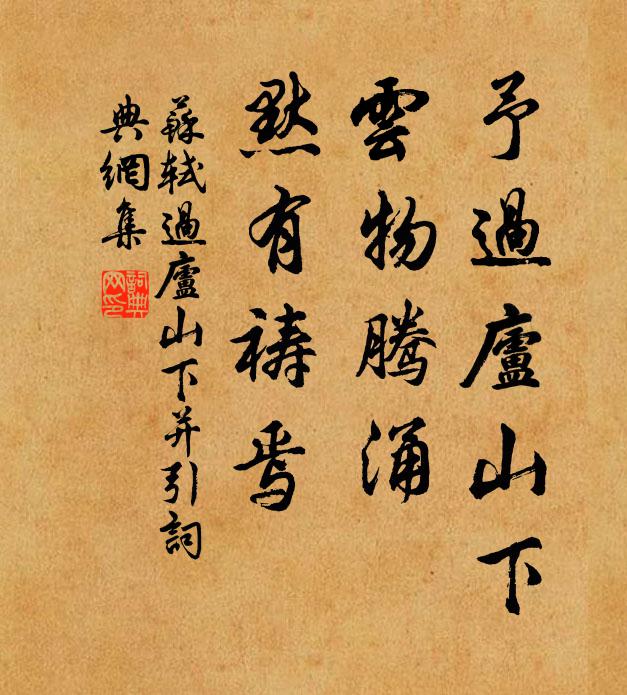 予過廬山下
雲物騰涌
默有禱焉
蘇軾過廬山下并引詞
典網集
詞典網印